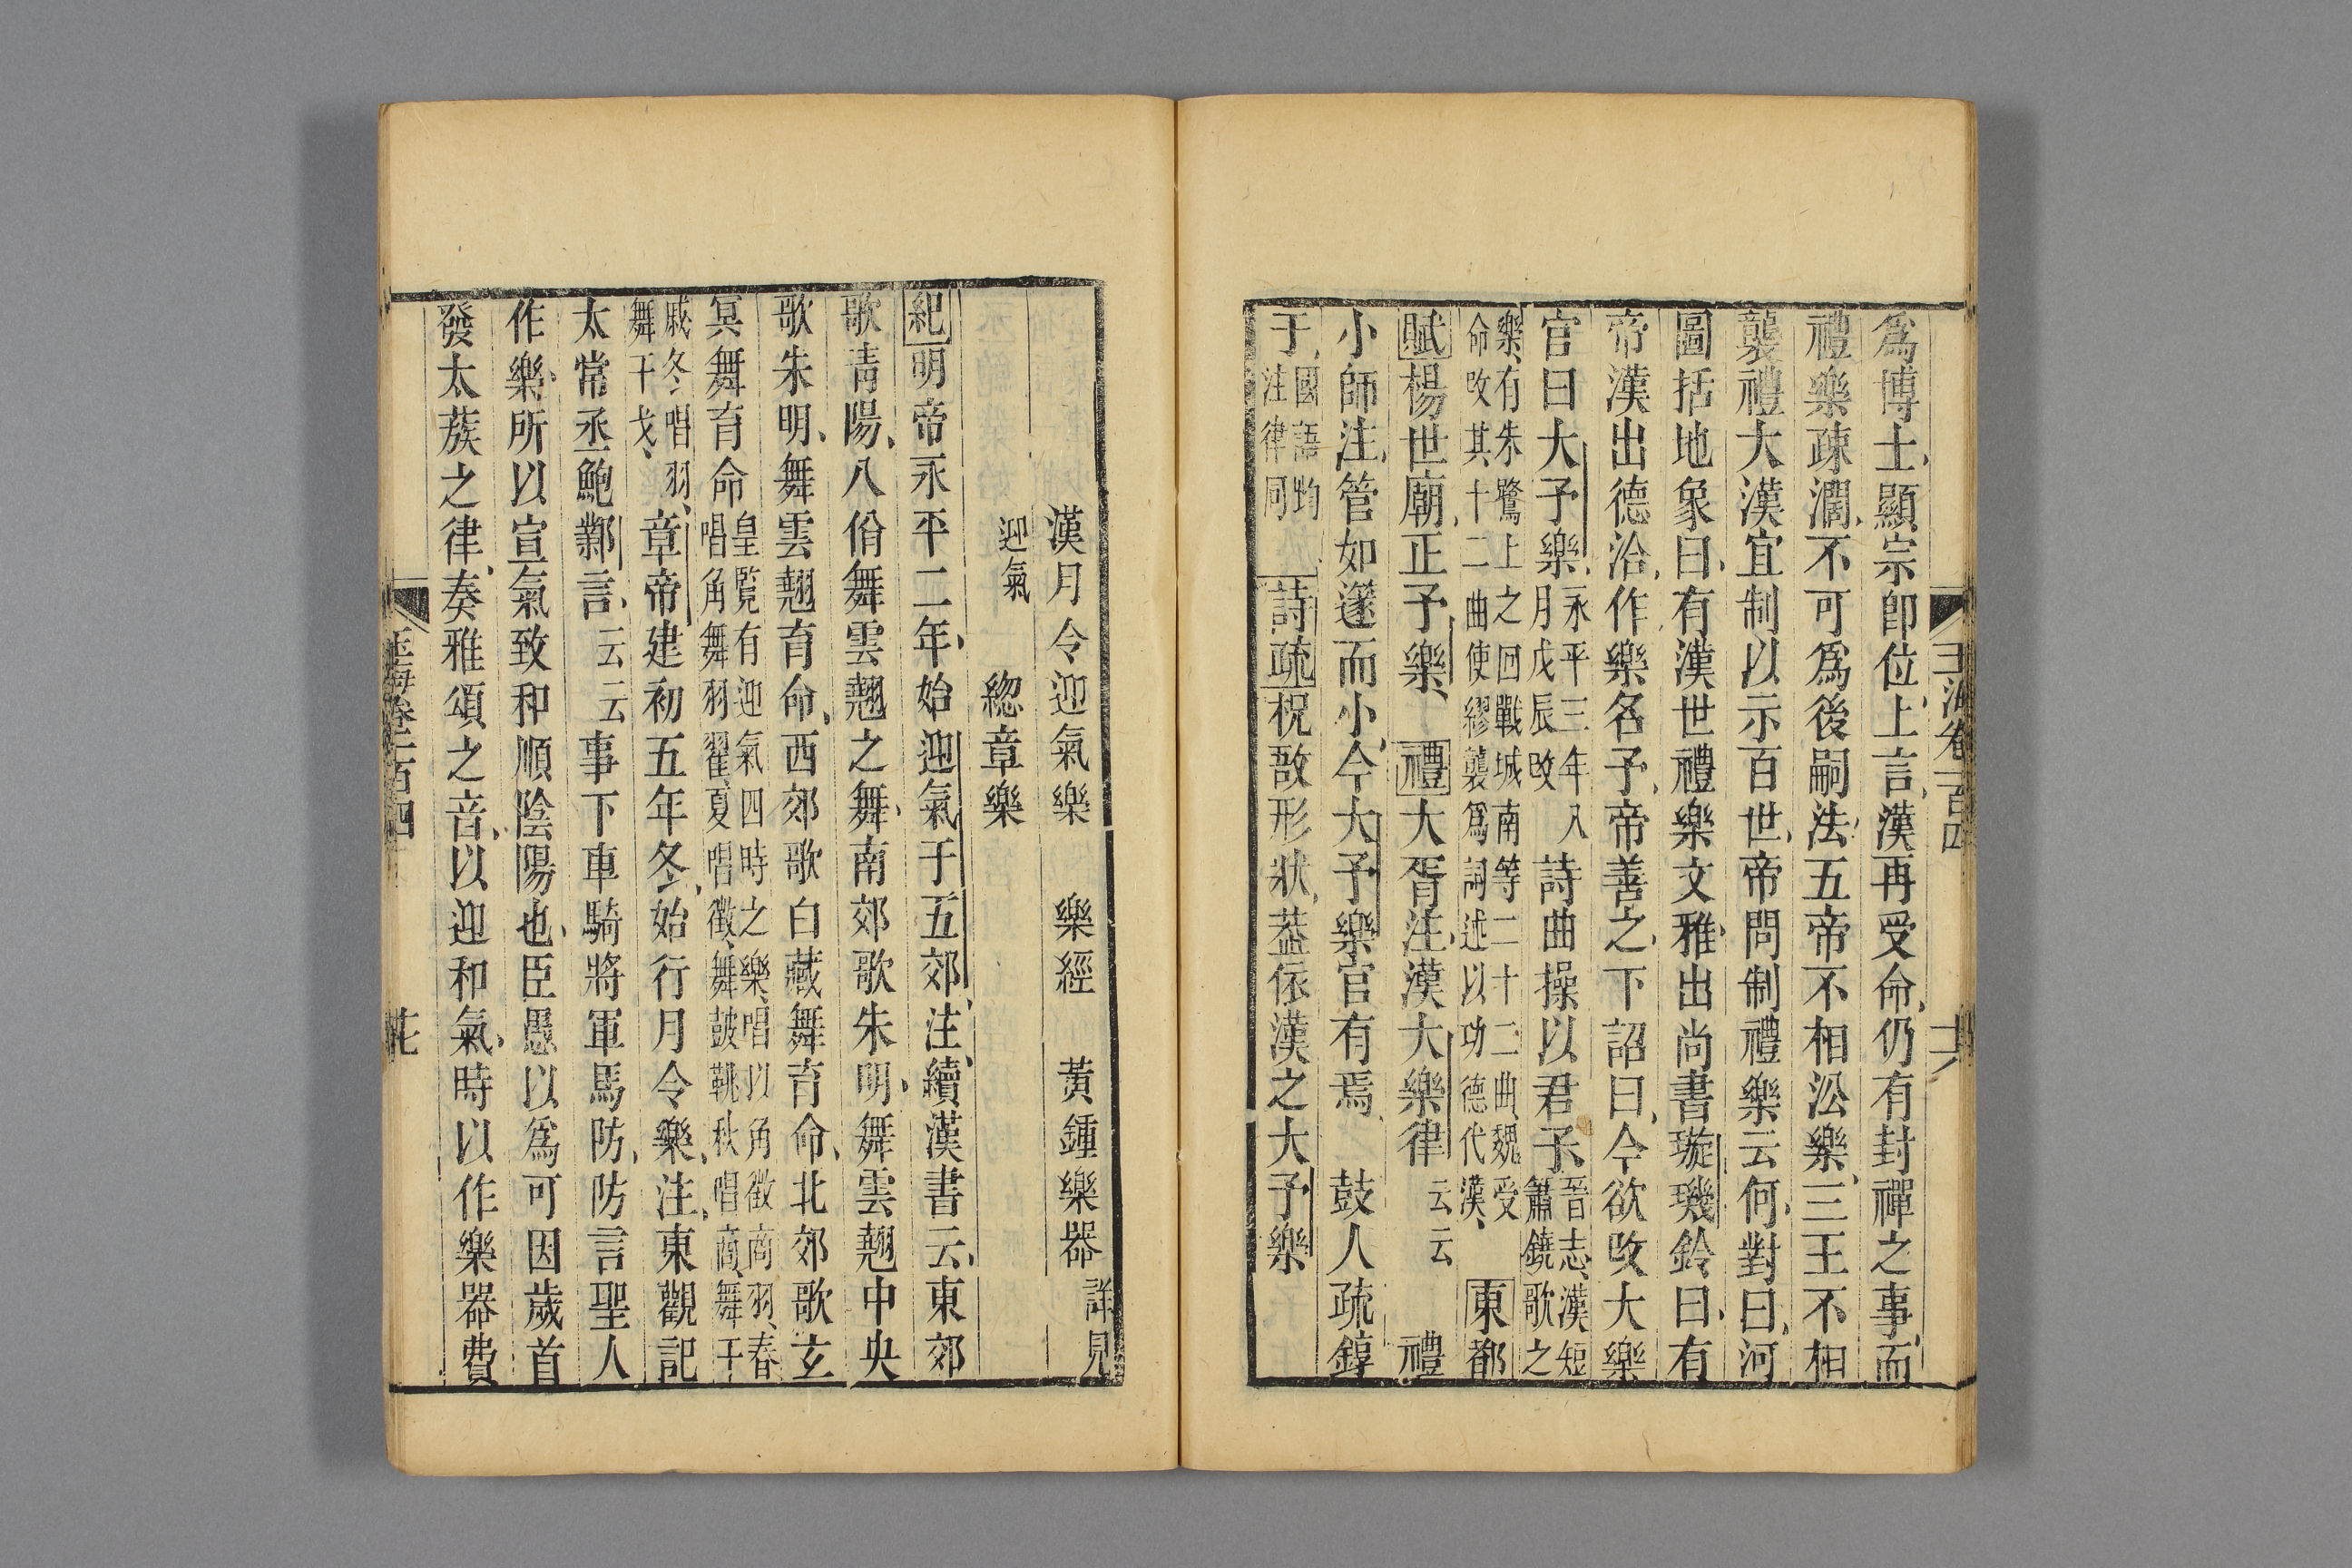 玉海卷一百四 十六
爲博士顯宗卽位上言漢再受命仍有封禪之事而
禮樂疎濶不可爲後嗣法五帝不相㳂樂三王不相
襲禮大漢宜制以示百世帝問制禮樂云何對曰河
圖括地象曰有漢世禮樂文雅出尚書璇璣鈐曰有
帝漢出德洽作樂名予帝善之下詔曰今欲改大樂
官曰大予樂永平三年八月戊辰改詩曲操以君子晉志漢短簫鐃歌之
樂有朱鷺上之回戰城南等二十二曲魏受命改其十二曲使繆襲爲詞述以功德代漢東都
賦楊世廟正予樂 禮大胥注漢大樂律云云 禮
小師注管如篴而小今大予樂官有焉 鼓人疏錞
于國語㘬注律同 詩疏柷敔形狀葢依漢之大予樂
漢月令迎氣樂 樂經 黃鍾樂器詳見
迎氣 緫章樂
紀明帝永平二年始迎氣于五郊注續漢書云東郊
歌青陽八佾舞雲翹之舞南郊歌朱明舞雲翹中央
歌朱明舞雲翹育命西郊歌白藏舞育命北郊歌玄
冥舞育命皇覽有迎氣四時之樂唱以角徵商羽春唱角舞羽翟夏唱徵舞鼓鞉秋唱商舞干
戚冬唱羽舞干戈章帝建初五年冬始行月令樂注東觀記
太常丞鮑鄴言云云事下車騎將軍馬防防言聖人
作樂所以宣氣致和順陰陽也臣愚以爲可因歲首
發太蔟之律奏雅頌之音以迎和氣時以作樂器費
玉海卷一百四 花